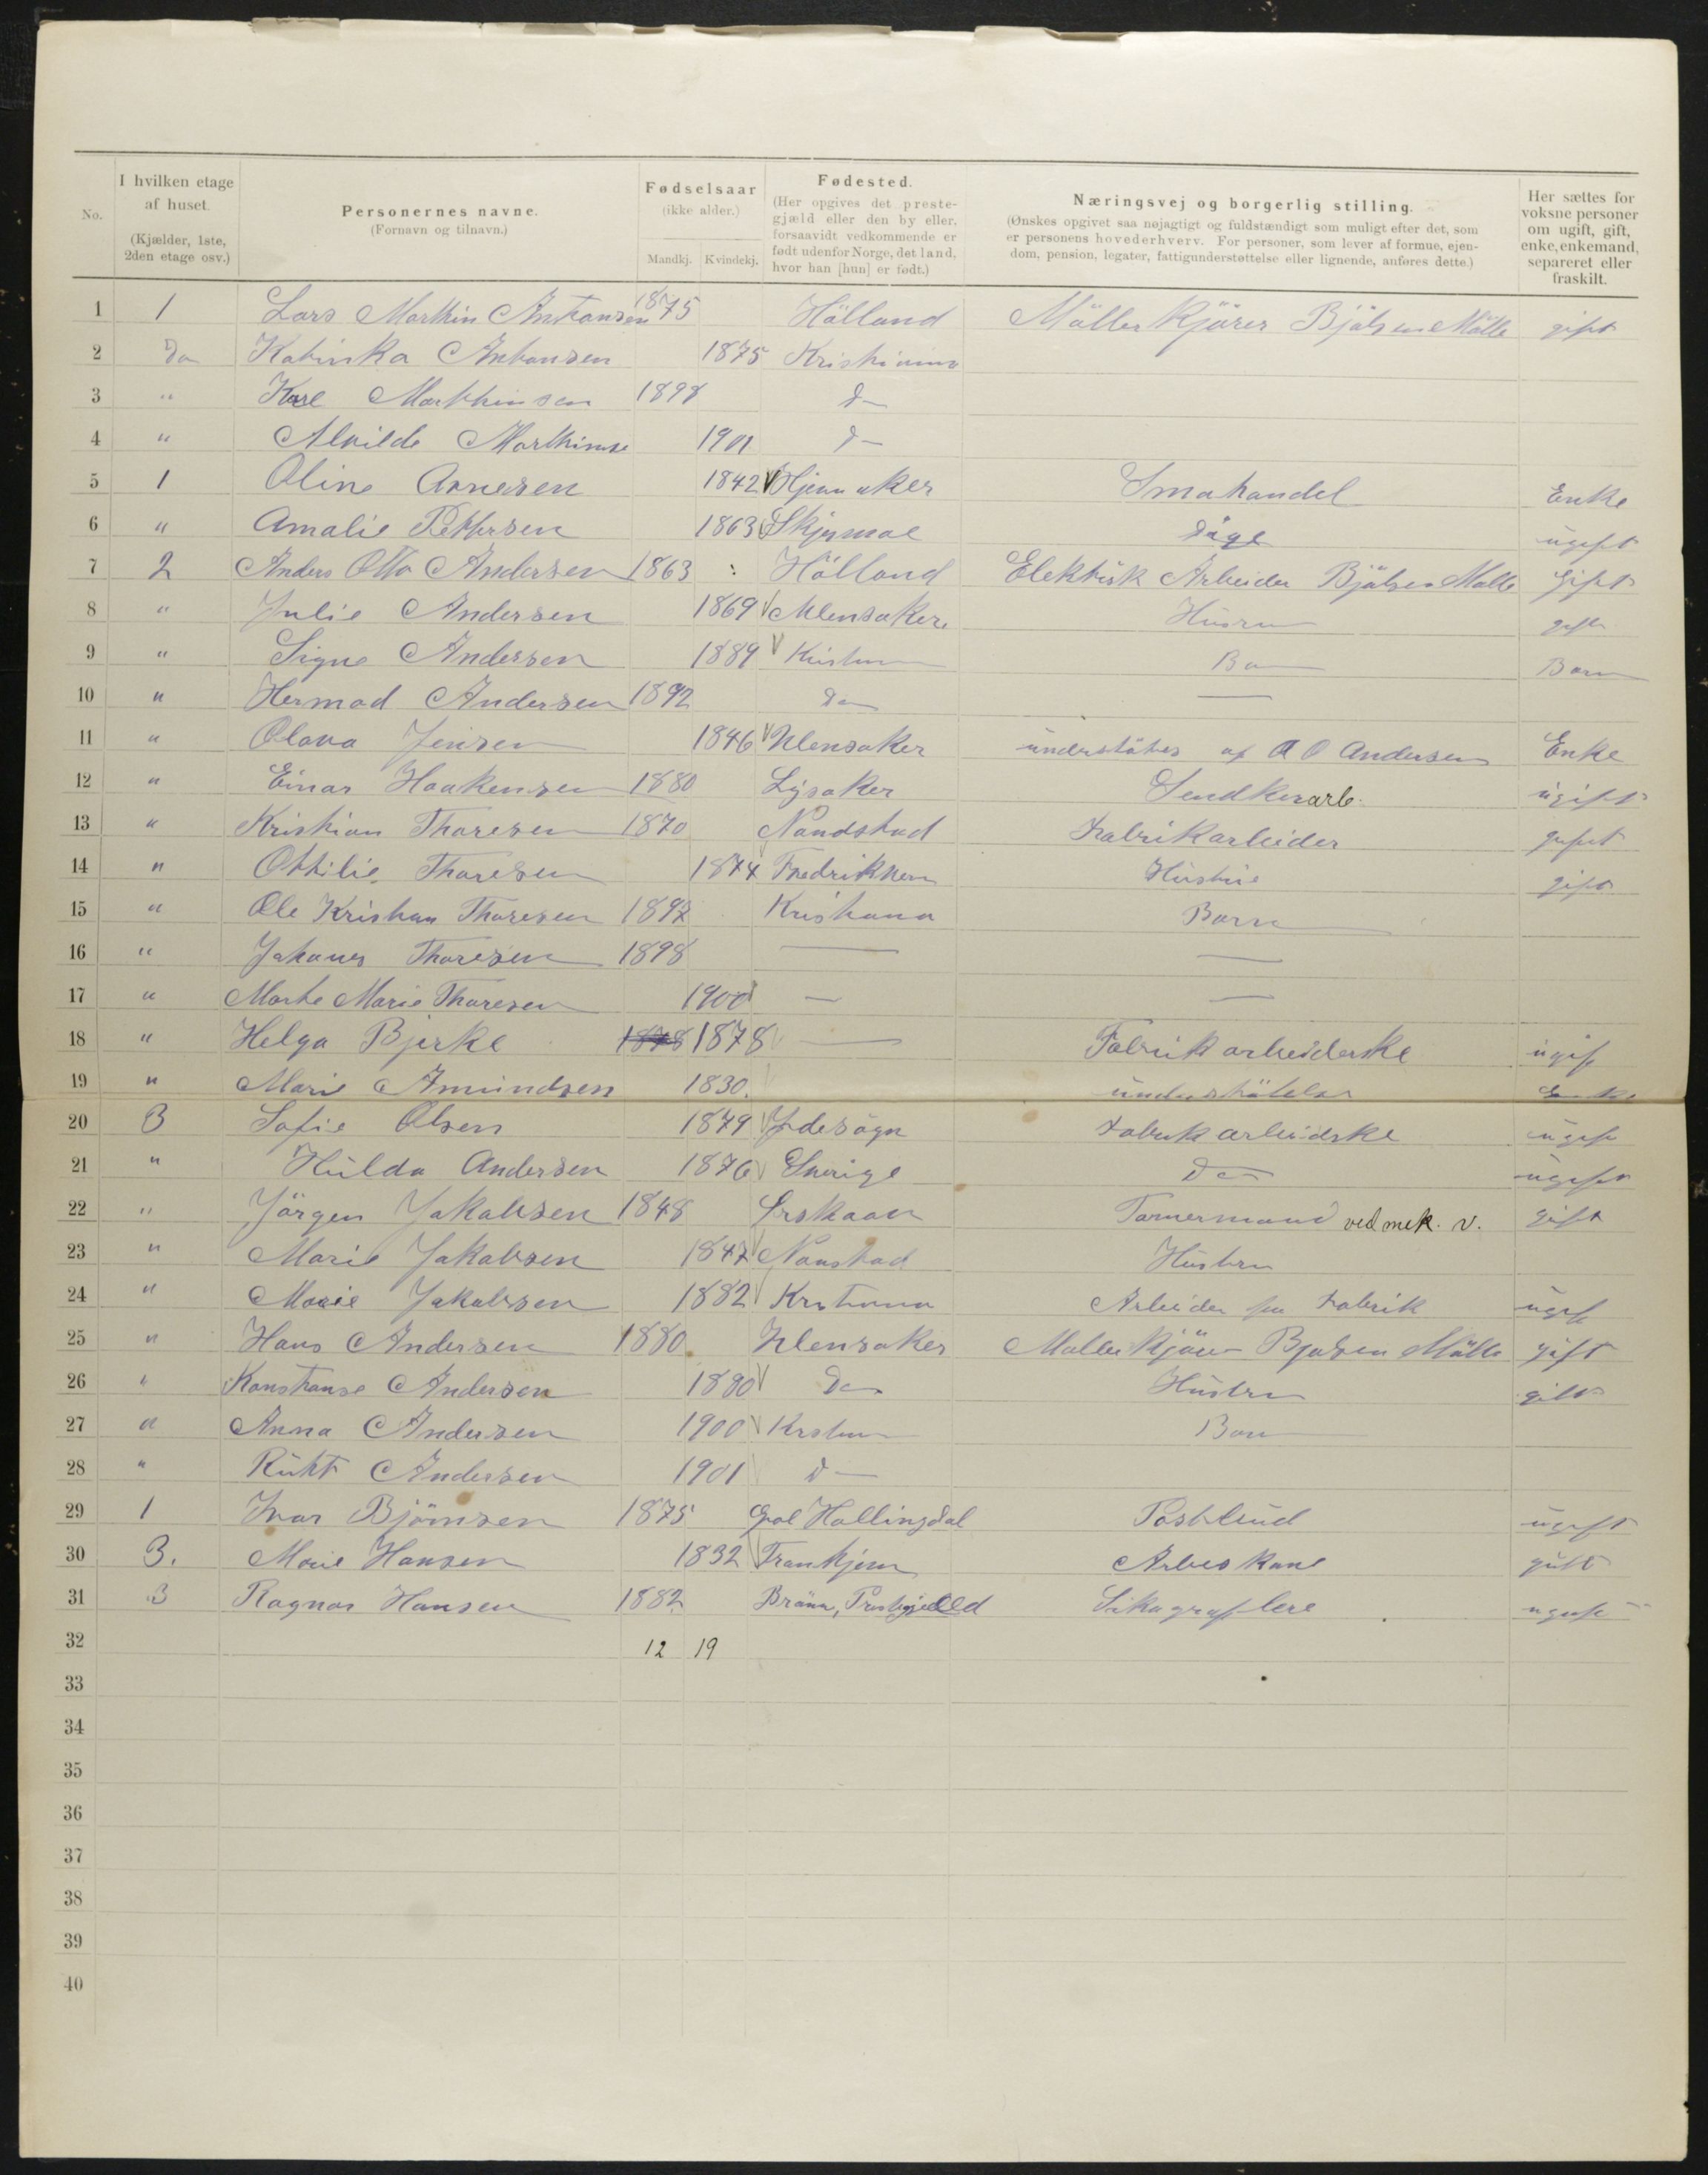 No. I hvilken etage af huset. (Kjælder, 1ste, 2den etage osv.) Personernes navne. (Fornavn og tilnavn.) Fødselsaar (ikke alder.) Mandkj. Kvindekj. Fødested. (Her opgives det prestegjæld eller den by eller, forsaavidt vedkommende er født udenfor Norge, det land, hvor han [hun] er født.) Næringsvej og borgerlig stilling. (Ønskes opgivet saa nøjagtigt og fuldstændigt som muligt efter det, som er personens hovederhverv. For personer, som lever af formue, ejendom, pension, legater, fattigunderstøttelse eller lignende, anføres dette.) Her sættes for voksne personer om ugift, gift, enke, enkemand, separeret eller fraskilt.
1 1 Lars Marthin Antonsen 1875 Hölland Möller Kjörer Bjölsen Mölle gift
2 Do Katinka Antonsen 1875 Kristiania
3 " Karl Marthinsen 1898 d—
4 " Alvilde Marthinse 1901 d—
5 1 Oline Arnesen 1842 Smahandel Enke
6 " Amalie Pettersen 1863 ugift
7 2 Anders Otto Andersen 1863 Hölland Elektrisk Arbeider Bjölsen Mölle Gift
8 " Julie Andersen 1869 Ulensaker Husru gift
9 " Signe Andersen 1889 Barn
10 " Hermod Andersen 1892 Do —
11 " Olava Jensen 1846 Ulensaker understötes af A O Andersen Enke
12 " Einar Haakensen 1880 Lysaker arb. ugift
13 " Kristian Thoresen 1870 Nandstad Fabrikarbeider gift
14 " Othilie Thoresen 1874 Hustrue gift
15 " Ole Kristian Thoresen 1897 Kristiana Barn
16 " Johanes Thoresen 1898 — —
17 " Marte Marie Thoresen 1900 — —
18 " Helga Bjerke 1878 1878 — Fabrik arbeiderske ugif
19 " Marie Amundsen 1830. understötelse Enke
20 3 Sofie Olsen 1879 Idesogn Fabrik arbeidske ugif
21 " Hulda Andersen 1876 Sverige Do ugift
22 " Jörgen Jakobsen 1848 Tømermand ved mek. v. gift
23 " Marie Jakobsen 1847 Nanstad Hustru
24 " Marie Jakobsen 1882 Kristiania Arbeider paa Fabrik ugif
25 " Hans Andersen 1880 Ulensaker Möller Kjörer Bjølsen Mölle gift
26 " Konstanse Andersen 1880 Do Hustru gift
27 " Anna Andersen 1900 Barn
28 " Ruht Andersen 1901 d—
29 1 Ivar Björnsen 1875 Gol Hallingdal Postbud ugift
30 3. Marie Hansen 1832 gift
31 3 Ragnar Hansen 1882 ugift
32 12 19
33
34
35
36
37
38
39
40